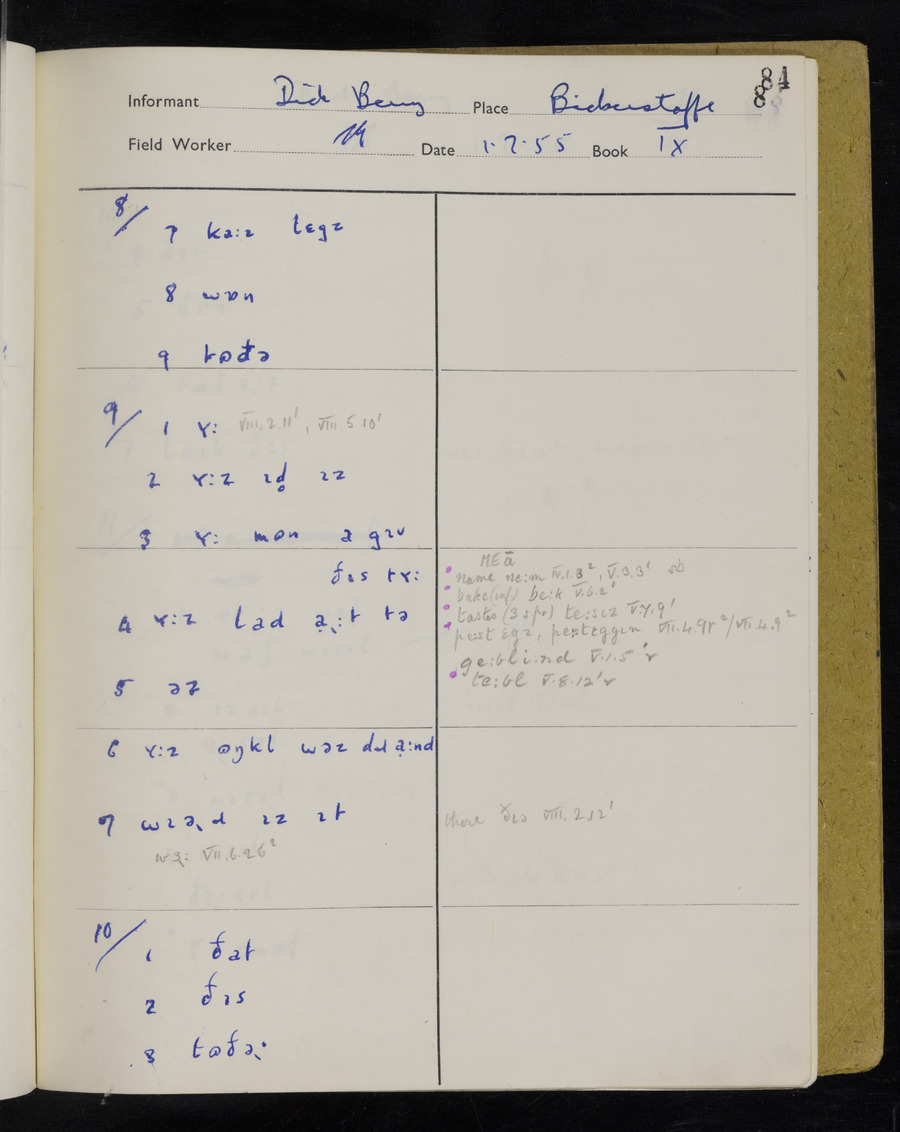 84
8
Informant Dick Berry Place Bickerstaffe
Field Worker Date 1.7.55 Book IX
8/ 7 ka:z legz
8 wɒn
9 tɷðə
9/ 1 ʏ: VIII.2.11', VIII.5.10'
2 ʏ:z ɪd̥ ɪz
3 ʏ: mɒn ə gɪv
ðɪs tʏ:
4 ʏ:z lad a̩:t tə
5 əz
6 ʏ:z ɷŋkl wəz dɹa̩:nd
7 wɪə d ɪz ɪt
wɜ: VII.6.26²
10/ 1 ðat
2 ðɪs
3 tɷðə
ME ā
name ne:m IV.1.3², V.3.3'
bake (inf) be:k V.6.2'
tastes (3 s pr) te:sɪz V.7.9'
pe:st egz, pe:steggɪn VII.4.9r²/VII.4.9²
ge:bl i:nd V.1.5'r
te:bl V.8.12'r
there ðɪə VIII.2.12'